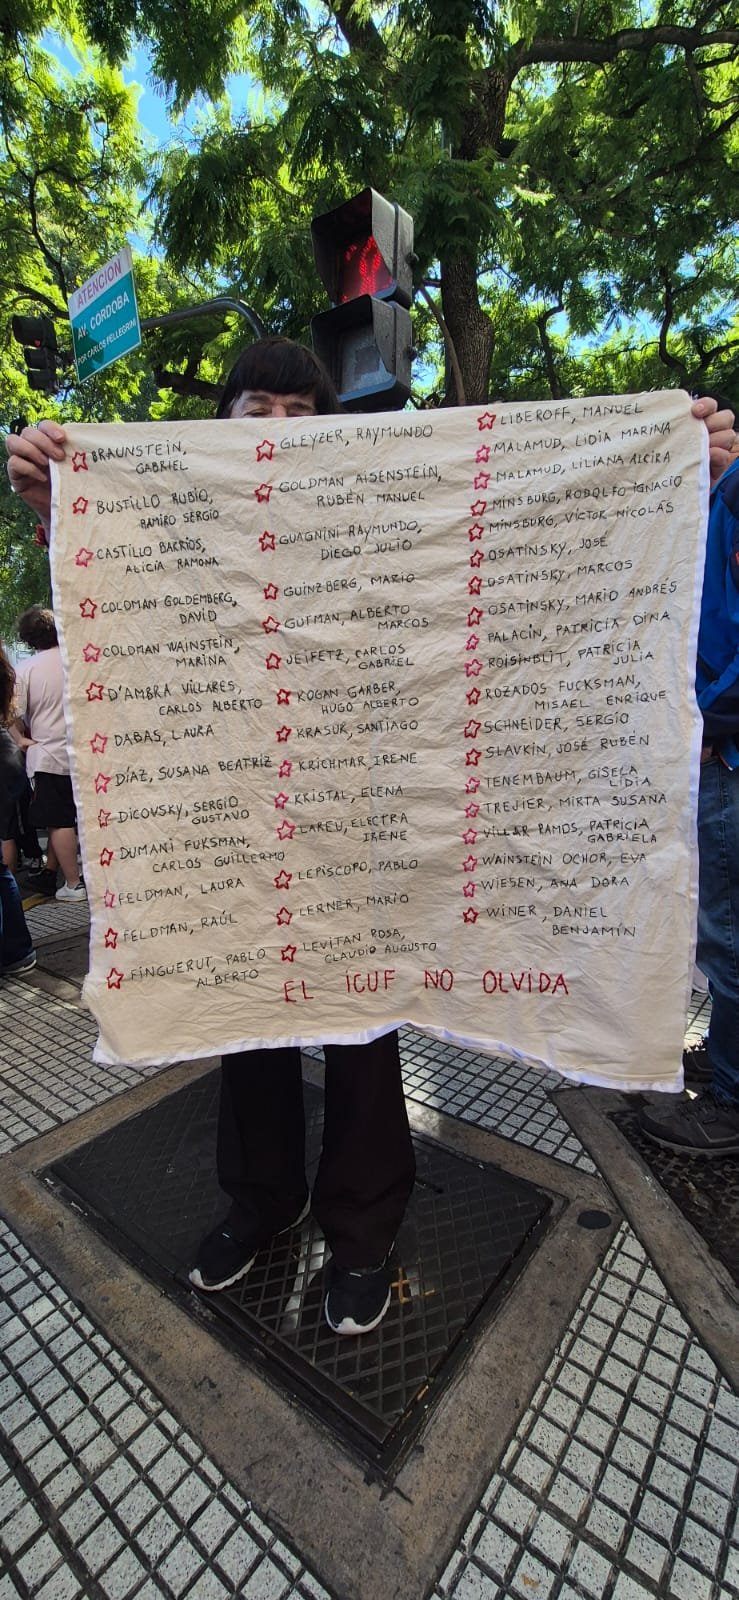 ATENCION
AV. CORDOBA
POR CARLOS PELLEGRINI
BRAUNSTEIN,
GABRIEL
BUSTILLO RUBIO,
RAMIRO SERGIO
CASTILLO BARRIOS,
ALICIA RAMONA
COLDMAN GOLDEMBERG,
DAVID
COLDMAN WAINSTEIN,
MARINA
D'AMBRA VILLARES,
CARLOS ALBERTO
DABAS, LAURA
DÍAZ, SUSANA BEATRIZ
DICOVSKY, SERGIO
GUSTAVO
DUMANI FUKSMAN,
CARLOS GUILLERMO
FELDMAN, LAURA
FELDMAN, RAÚL
FINGUERUT, PABLO
ALBERTO
GLEYZER, RAYMUNDO
GOLDMAN AISENSTEIN,
RUBÉN MANUEL
GUAGNINI RAYMUNDO,
DIEGO JULIO
GUINZBERG, MARIO
GUTMAN, ALBERTO
MARCOS
JEIFETZ, CARLOS
GABRIEL
KOGAN GARBER,
HUGO ALBERTO
KRASUK, SANTIAGO
KRICHMAR, IRENE
KRISTAL, ELENA
LAREU, ELECTRA
IRENE
LEPÍSCOPO, PABLO
LERNER, MARIO
LEVITAN ROSA,
CLAUDIO AUGUSTO
LIBEROFF, MANUEL
MALAMUD, LIDIA MARINA
MALAMUD, LILIANA ALCIRA
MINSBURG, RODOLFO IGNACIO
MINSBURG, VÍCTOR NICOLÁS
OSATINSKY, JOSÉ
OSATINSKY, MARCOS
OSATINSKY, MARIO ANDRÉS
PALACÍN, PATRICIA DINA
ROISINBLIT, PATRICIA
JULIA
ROZADOS FUCKSMAN,
MISAEL ENRIQUE
SCHNEIDER, SERGIO
SLAVKIN, JOSÉ RUBÉN
TENEMBAUM, GISELA
LIDIA
TREJIER, MIRTA SUSANA
VILLAR RAMOS, PATRICIA
GABRIELA
WAINSTEIN OCHOR, EVA
WIESEN, ANA DORA
WINER, DANIEL
BENJAMÍN
EL ICUF NO OLVIDA